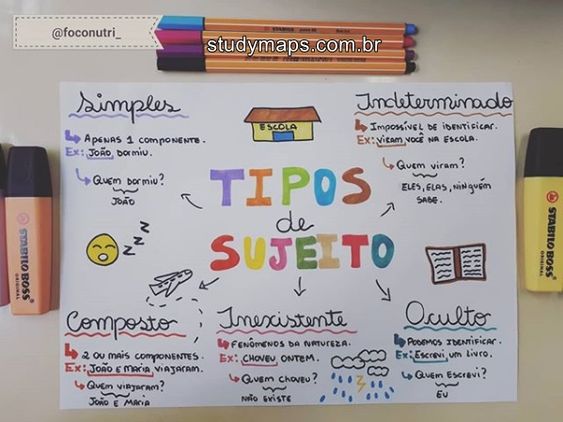 @foconutri_
studymaps.com.br
STABILO
Simples
APENAS 1 COMPONENTE.
Ex: JOÃO DORMIU.
QUEM DORMIU?
JOÃO
ESCOLA
Indeterminado
IMPOSSÍVEL DE IDENTIFICAR.
Ex: VIRAM VOCÊ NA ESCOLA.
QUEM VIRAM?
ELES, ELAS, NINGUÉM
SABE.
TIPOS
de
SUJEITO
STABILO BOSS
ORIGINAL
STABILO BOSS
ORIGINAL
Composto
2 OU MAIS COMPONENTES.
Ex: JOÃO E MARIA VIAJARAM.
QUEM VIAJARAM?
JOÃO E MARIA
Inexistente
FENÔMENOS DA NATUREZA.
Ex: CHOVEU ONTEM.
QUEM CHOVEU?
NÃO EXISTE
Oculto
PODEMOS IDENTIFICAR.
Ex: ESCREVI UM LIVRO.
QUEM ESCREVI?
EU